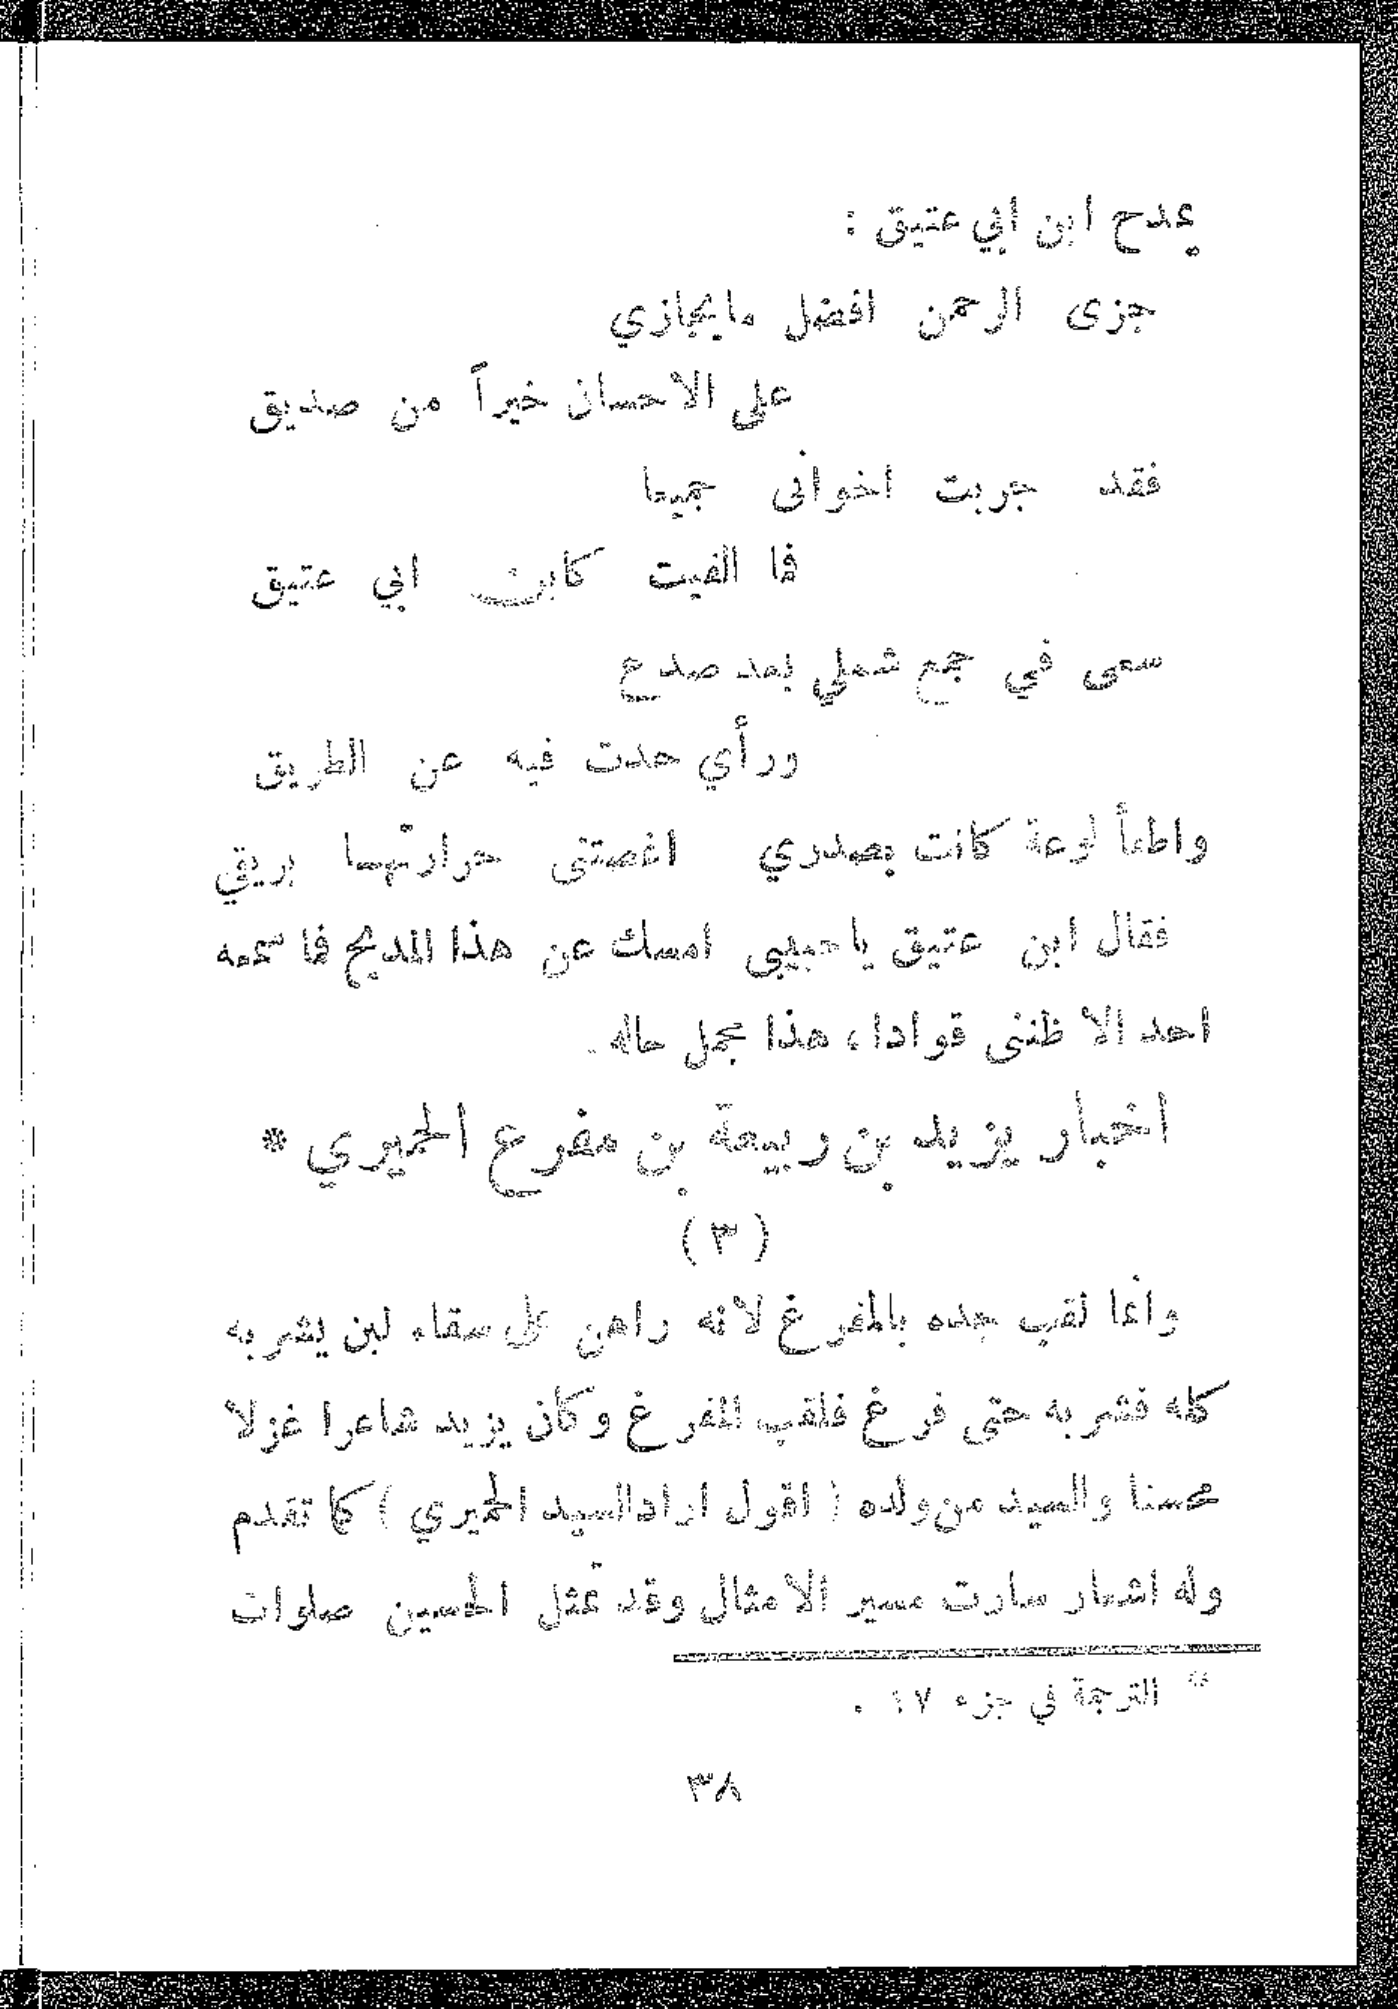 يمدح ابن ابي عتيق :
جزى الرحمن افضل مايجازي
على الاحسان خيراً من صديق
فقد جربت اخوانى جميعا
فما الفيت كابن ابي عتيق
سعى في جمع شملي بعد صدع
ورأي حدت فيه عن الطريق
واطفأ لوعة كانت بصدري اغصتنى حرارتهما بريقي
فقال ابن عتيق ياحبيبى امسك عن هذا المديح فما سمعه
احد الا ظننى قوادا ، هذا مجمل حاله .
اخبار يزيد بن ربيعة بن مفرع الحميري *
( ٣ )
وانما لقب جده بالمفرغ لانه راهن على سقاء لبن يشربه
كله فشربه حتى فرغ فلقب المفرغ وكان يزيد شاعرا غزلا
محسنا والسيد من ولده ( اقول اراد السيد الحميري ) كما تقدم
وله اشعار سارت مسير الامثال وقد تمثل الحسين صلوات
* الترجمة في جزء ١٧ .
٣٨